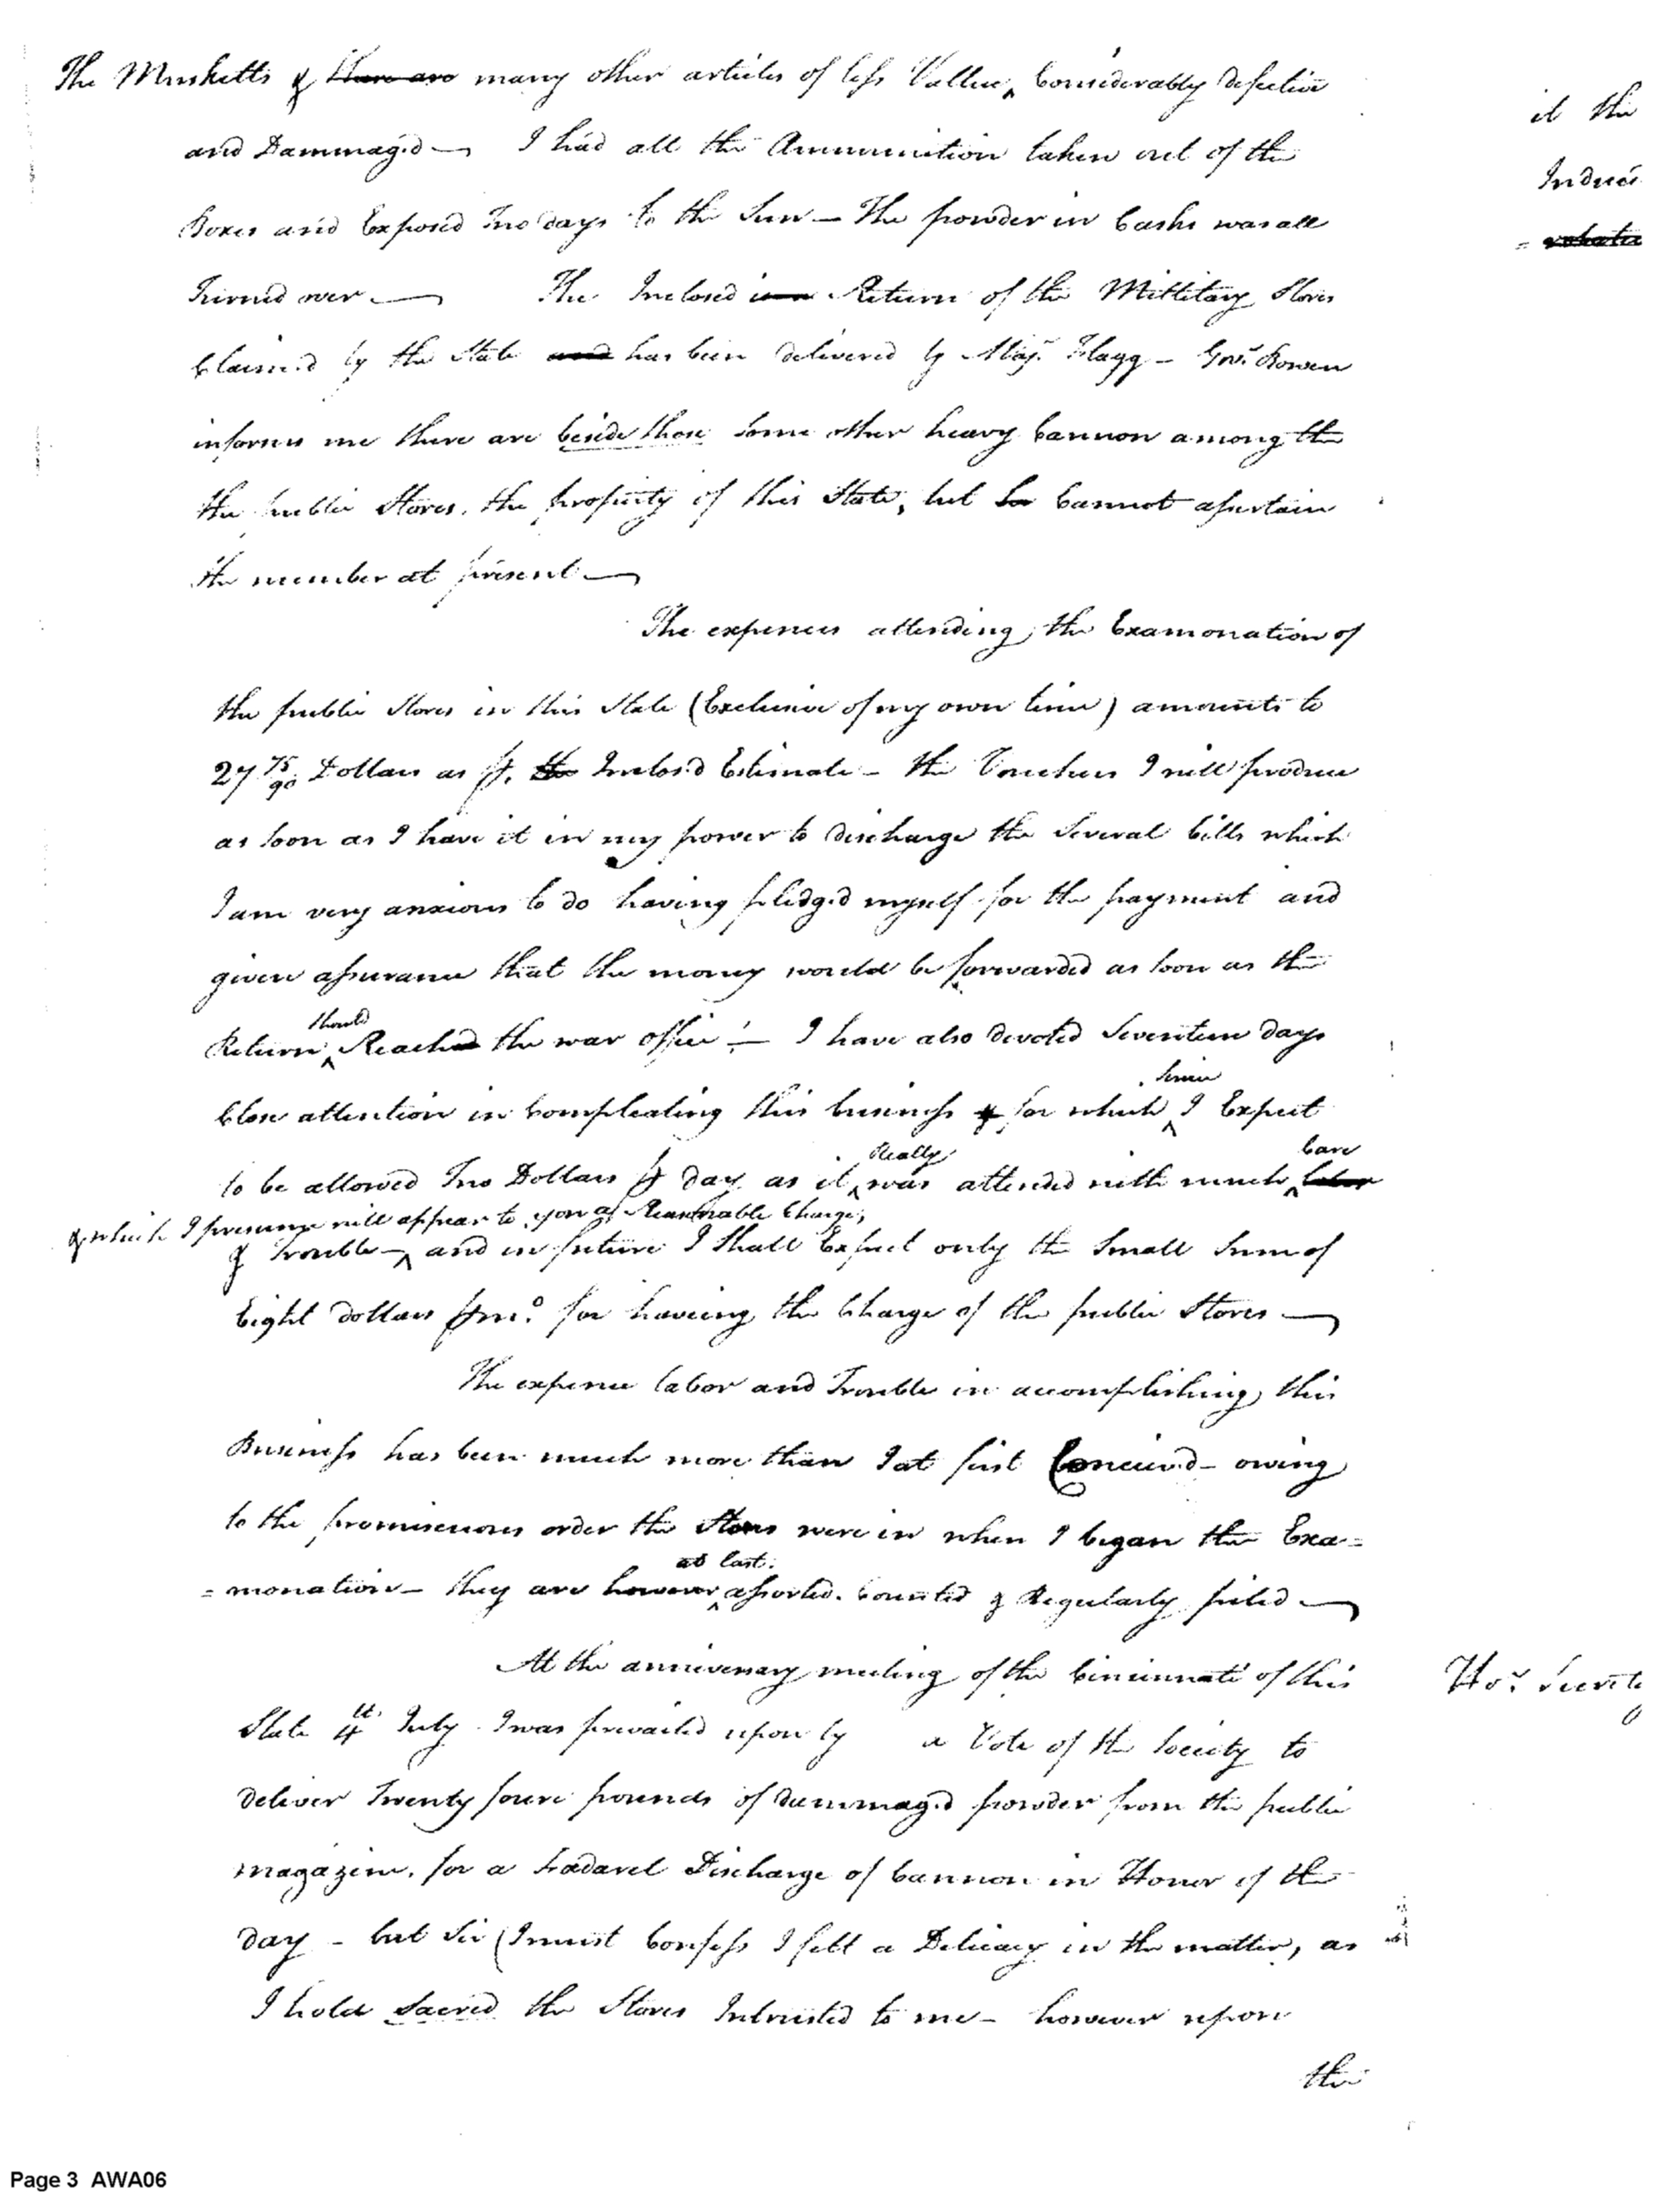 The Musketts & there are many other articles of less Vallue, Considerably defective
and Dammag'd — I had all the Ammunition taken out of the
Boxes and Exposed Two days to the Sun — The powder in Casks was all
Turned over — The Inclosed Return of the Millitary Stores
Claim'd by the State and has been delivered by Majr. Flagg — Govr. Bowen
informs me there are beside those some other heavy Cannon among the
the public Stores, the property of this State, but he Cannot assertain
the number at present —
The expences attending the Examonation of
the public Stores in this State (Exclusive of my own time) amounts to
27 75/90 Dollars as pr. the Inclos'd Estimate — the Vouchers I will produce
as soon as I have it in my power to discharge the Several bills which
I am very anxious to do having pledg'd myself for the payment and
given assurance that the money would be forwarded as soon as the
should
Return Reached the war office — I have also devoted Seventeen days
Close attention in Compleating this business & for which I Expect
Really Care
to be allowed Two Dollars pr day as it was attended with much labor
& which I presume will appear to you a Reasonable Charge,
& Trouble — and in future I shall Expect only the Small Sum of
Eight dollars pr mo. for having the Charge of the public Stores —
The expence labor and Trouble in accomplishing this
Business has been much more than I at first Conceiv'd — owing
to the promiscuous order the Stores were in when I began the Exa=
at last
=monation — they are however assorted. Counted & Regularly piled —
At the anniversary meeting of the Cincinnati of this
State 4th July I was prevailed upon by a Vote of the Society to
deliver Twenty four pounds of dammag'd powder from the public
magazine, for a Fadaral Discharge of Cannon in Honor of the
day — but Sir (I must Confess I felt a Delicacy in the matter, as
I hold Sacred the Stores Intrusted to me — however upon
the
it the
Induce
Honr. Secrety
Page 3 AWA06